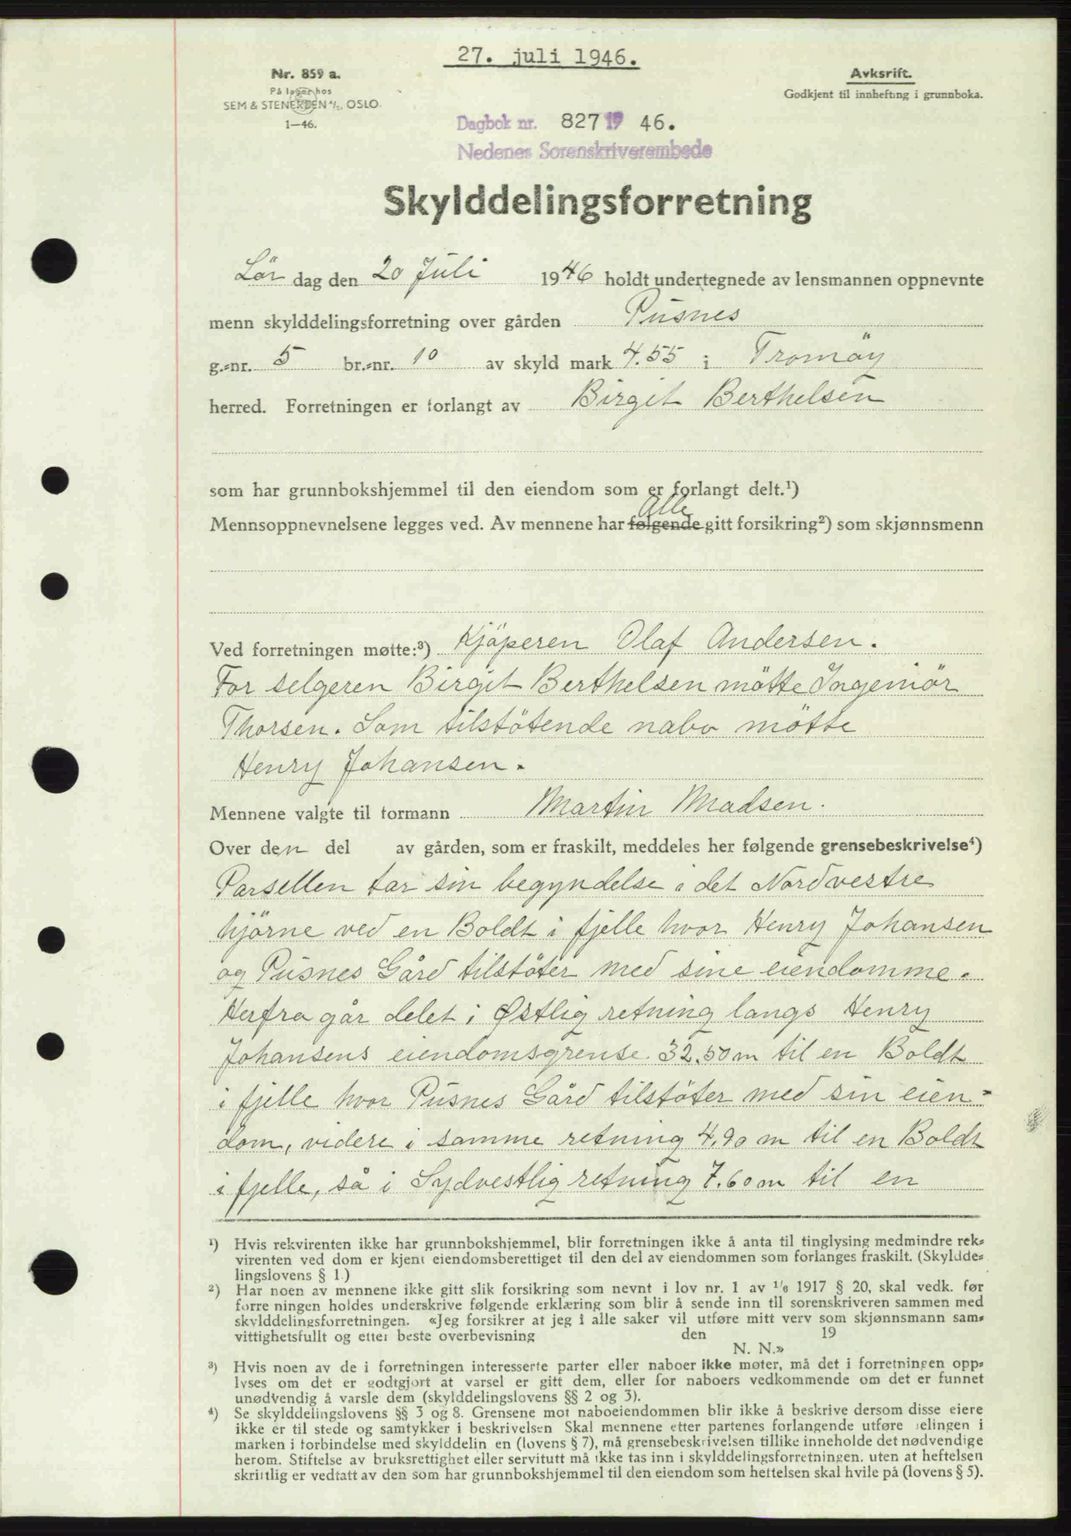 27. juli 1946.
Nr. 859 a.
På lager hos
SEM & STENERSEN A/S, OSLO.
1—46.
Avksrift.
Godkjent til innhefting i grunnboka.
Dagbok nr. 827 19 46.
Nedenes Sorenskriverembede
Skylddelingsforretning
Lör dag den 20 Juli 1946 holdt undertegnede av lensmannen oppnevnte
menn skylddelingsforretning over gården Pusnes
g.-nr. 5 br.-nr. 10 av skyld mark 4.55 i Tromöy
herred. Forretningen er forlangt av Birgit Berthelsen
som har grunnbokshjemmel til den eiendom som er forlangt delt.¹)
Alle
Mennsoppnevnelsene legges ved. Av mennene har følgende gitt forsikring²) som skjønnsmenn
Ved forretningen møtte:³) Kjöperen Olaf Andersen.
For selgeren Birgit Berthelsen mötte Ingeniör
Thorsen. Som tilstötende nabo mötte
Henry Johansen.
Mennene valgte til formann Martin Madsen.
Over den del av gården, som er fraskilt, meddeles her følgende grensebeskrivelse⁴)
Parsellen tar sin begyndelse i det Nordvestre
hjörne ved en Boldt i fjelle hvor Henry Johansen
og Pusnes Gård tilstöter med sine eiendomme.
Herfra går delet i Østlig retning langs Henry
Johansens eiendomsgrense. 32.50 m til en Boldt
i fjelle hvor Pusnes Gård tilstöter med sin eien-
dom, videre i samme retning 4.90 m til en Boldt
i fjelle, så i Sydvestlig retning 7.60 m til en
¹) Hvis rekvirenten ikke har grunnbokshjemmel, blir forretningen ikke å anta til tinglysing medmindre rek-
virenten ved dom er kjent eiendomsberettiget til den del av eiendommen som forlanges fraskilt. (Skyldde-
lingslovens § 1.)
²) Har noen av mennene ikke gitt slik forsikring som nevnt i lov nr. 1 av 1/6 1917 § 20, skal vedk. før
forretningen holdes underskrive følgende erklæring som blir å sende inn til sorenskriveren sammen med
skylddelingsforretningen. «Jeg forsikrer at jeg i alle saker vil utføre mitt verv som skjønnsmann sam-
vittighetsfullt og etter beste overbevisning den 19
N. N.»
³) Hvis noen av de i forretningen interesserte parter eller naboer ikke møter, må det i forretningen opp-
lyses om det er godtgjort at varsel er gitt dem, eller for naboers vedkommende om det er funnet
unødvendig å varsle dem (skylddelingslovens §§ 2 og 3).
⁴) Se skylddelingslovens §§ 3 og 8. Grensene mot naboeiendommen blir ikke å beskrive dersom disse eiere
ikke er til stede og samtykker i beskrivelsen Skal mennene etter partenes forlangende utføre delingen i
marken i forbindelse med skylddelingen (lovens § 7), må grensebeskrivelsen tillike inneholde det nødvendige
herom. Stiftelse av bruksrettighet eller servitutt må ikke tas inn i skylddelingsforretningen, uten at heftelsen
skriftlig er vedtatt av den som har grunnbokshjemmel til den eiendom som heftelsen skal hvile på (lovens § 5).